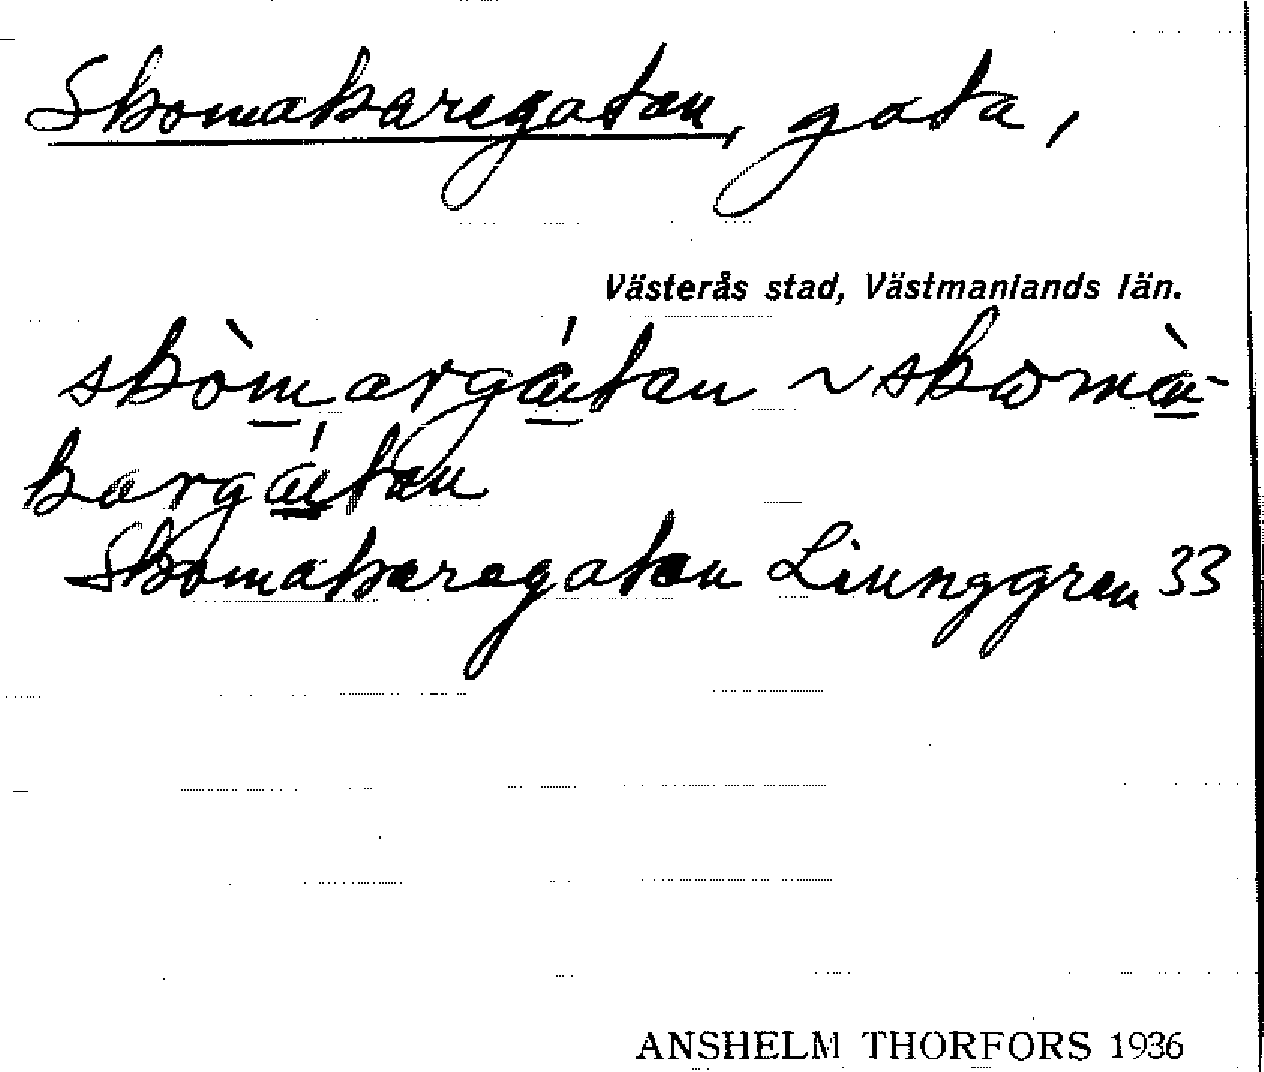 Skomakaregatan, gata,
Västerås stad, Västmanlands län.
skòmargátan ~ skomà-
kargátan
Skomakaregatan Liunggren 33
ANSHELM THORFORS 1936